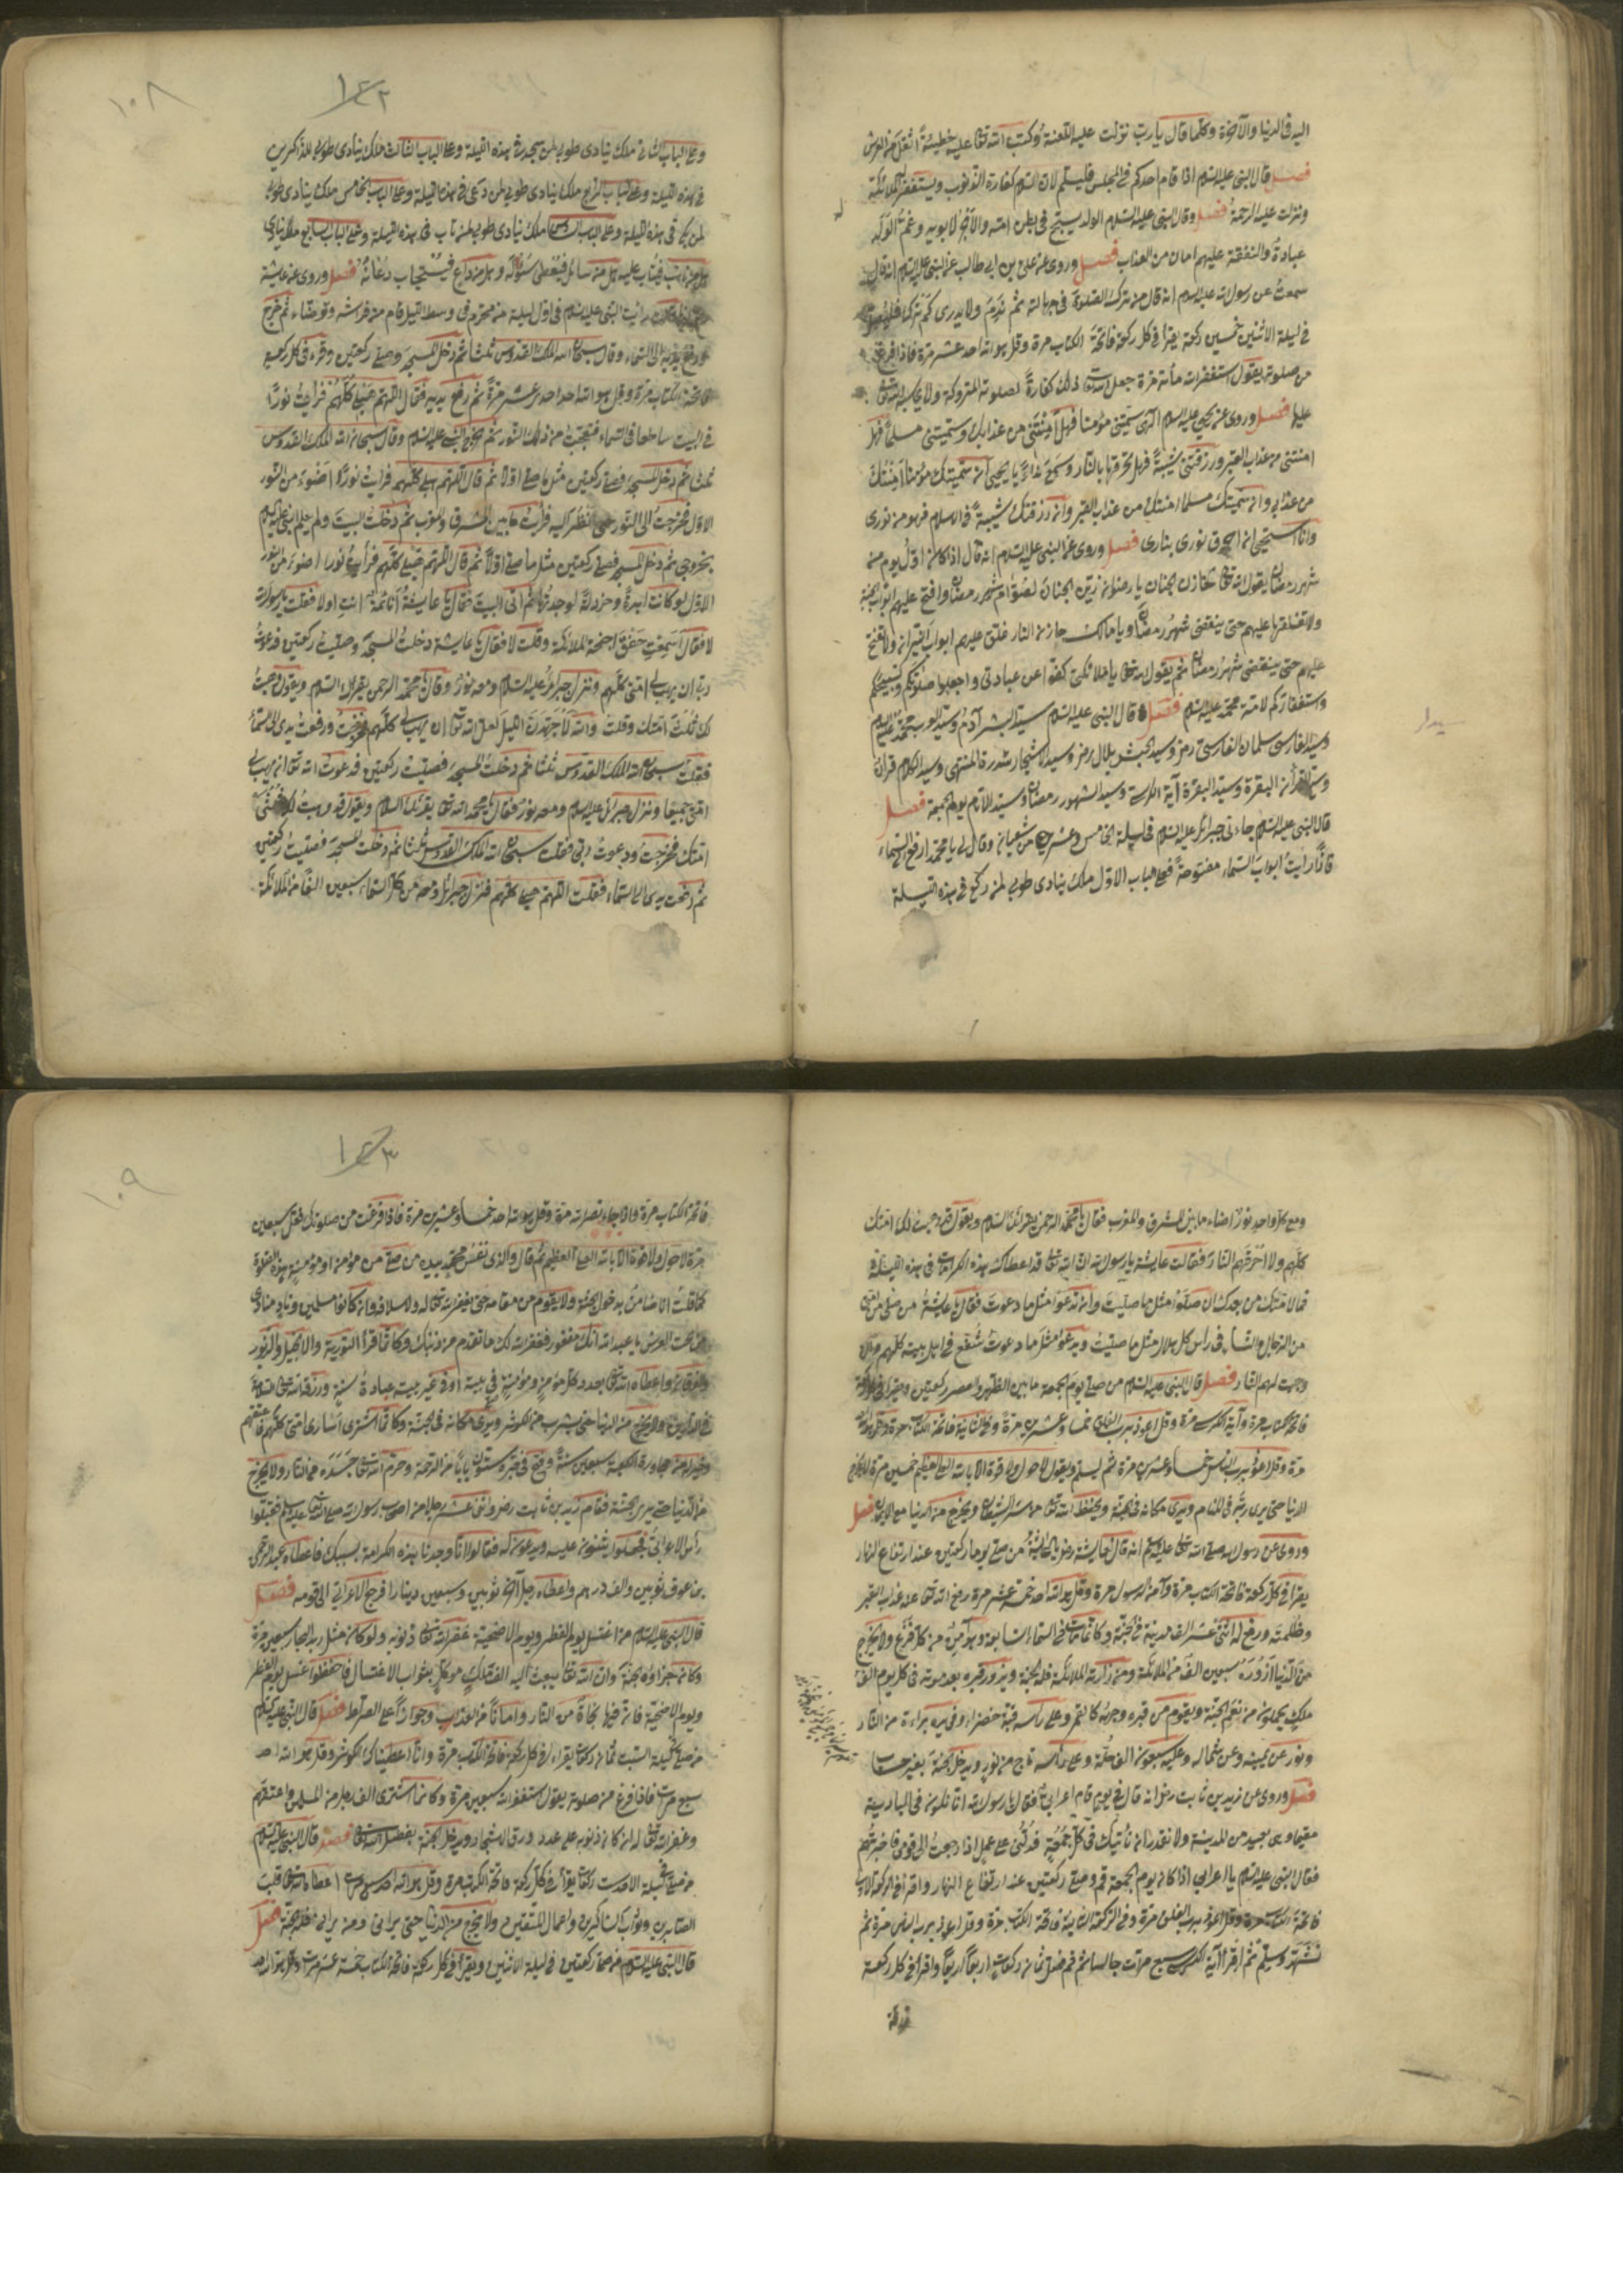 اليه فى الدنيا والآخرة وكلما قال يارب نزلت عليه اللعنة وكتب الله تعالى عليه خطيئة اثقل من العرش
فصل قال النبى عليه السلام اذا قام احدكم فى المجلس فليسلم لان السلام كفارة الذنوب ويستغفر الملائكة
ونزلت عليه الرحمة فصل وقال النبى عليه السلام الولد يسبح فى بطن امه والاجر لابويه وغم الولد
عبادة والنفقة عليهم امان من العذاب فصل وروى عن على بن ابى طالب عن النبى عليه السلام انه قال
سمعت عن رسول الله عليه السلام انه قال من ترك الصلوة فى جهالته ثم ندم ولا يدرى كم تركها فليصل
فى ليلة الاثنين خمسين ركعة يقرا فى كل ركعة فاتحة الكتاب مرة وقل هو الله احد عشر مرة فاذا فرغ
من صلوته يقول استغفر الله مائة مرة جعل الله ذلك كفارة لصلوته المتروكة ولا يحاسبه الله تعالى
عليها فصل وروى عن يحيى عليه السلام الهى سميتنى مؤمنا فهل امنتنى من عذابك وسميتنى مسلما فهل
امنتنى من عذاب القبر ورزقتنى شيبة فهل تحرقها بالنار وسمع نداء يا يحيى ان سميتك مؤمنا امنتك
من عذابى وان سميتك مسلما امنتك من عذاب القبر وان رزقتك شيبة فى الاسلام فهو من نورى
وانا استحيى ان احرق نورى بنارى فصل وروى عن النبى عليه السلام انه قال اذا كان اول يوم من
شهر رمضان يقول الله تعالى لخازن الجنان يا رضوان زين الجنان لصوام شهر رمضان وافتح عليهم ابواب الجنة
ولا تغلقها عليهم حتى ينقضى شهر رمضان ويا مالك خازن النار غلق عليهم ابواب النيران ولا تفتح
عليهم حتى ينقضى شهر رمضان ثم يقول الله تعالى يا ملائكتى كفوا عن عبادتى واجعلوا صلوتكم وتسبيحكم
واستغفاركم لامة محمد عليه السلام فصل قال النبى عليه السلام سيد البشر آدم وسيد العرب محمد عليه السلام
وسيد الفارسى سلمان الفارسى رمز وسيد الحبش بلال رمز وسيد الاشجار سدرة المنتهى وسيد الكلام قران
وسيد القرأن البقرة وسيد البقرة آية الكرسى وسيد الشهور رمضان وسيد الايام يوم الجمعة فصل
قال النبى عليه السلام جاءنى جبرائل عليه السلام فى ليلة الخامس وعشرين من شعبان وقال لى يا محمد ارفع الى السماء
فاذا رأيت ابواب السماء مفتوحة فعلى باب الاول ملك ينادى طوبى لمن ركع فى هذه الليلة
١٠٨
١٤٢
وعلى الباب الثانى ملك ينادى طوبى لمن سجد فى هذه الليلة وعلى الباب الثالث ملك ينادى طوبى للذاكرين
فى هذه الليلة وعلى الباب الرابع ملك ينادى طوبى لمن دعى فى هذه الليلة وعلى الباب الخامس ملك ينادى طوبى
لمن بكى فى هذه الليلة وعلى الباب السادس ملك ينادى طوبى لمن تاب فى هذه الليلة وعلى الباب السابع ملك ينادى
هل من تائب فيتاب عليه هل من سائل فيعطى سؤاله وهل من داع فيستجاب دعائه فصل وروى عن عايشة
رأيت النبى عليه السلام فى اول ليلة من محرم فى وسط الليل قام من فراشه وتوضاء ثم خرج
ورفع يديه الى السماء وقال سبحان الله الملك القدوس ثلثا ثم دخل المسجد وصلى ركعتين وقرء فى كل ركعة
فاتحة الكتاب مرة وقل هو الله احد احد عشر مرة ثم رفع يديه فقال اللهم هب لى كلهم فرأيت نورا
فى البيت ساطعا فى السماء فتعجبت من ذلك النور ثم خرج النبى عليه السلام وقال سبحان الله الملك القدوس
ثلثا ثم دخل المسجد فصلى ركعتين مثل ما صلى اولا ثم قال اللهم هب لى كلهم فرأيت نورا اضوء من النور
الاول فخرجت الى النور حتى نظر اليه فرأيت ما بين المشرق والمغرب ثم دخلت البيت ولم يعلم النبى عليه السلام
بخروجى ثم دخل المسجد فصلى ركعتين مثل ما صلى اولا ثم قال اللهم هب لى كلهم فرأيت نورا اضوء من النور
الاول لو كانت ابرة وخردلة لوجدتها ثم اتى البيت فقال يا عايشة أنائمة انت اولا فقلت يا رسول الله
لا فقال أسمعت خفق اجنحة الملائكة وقلت لا فقال يا عايشة دخلت المسجد وصليت ركعتين فدعوت
ربى ان يهب لى امتى كلهم ونزل جبرائل عليه السلام ومعه نور وقال يا محمد الرحمن يقرئك السلام ويقول وهبت
لك ثلث امتك وقلت والله لاجتهدن الليل لعل الله تعالى ان يهب لى كلهم فخرجت ورفعت يدى الى السماء
فقلت سبحان الله الملك القدوس ثلثا ثم دخلت المسجد فصليت ركعتين فدعوت الله تعالى ان يهب لى
امتى جميعا ونزل جبرائل عليه السلام ومعه نور فقال يا محمد الله تعالى يقرئك السلام ويقول قد وهبت لك ثلثى
امتك فخرجت ودعوت ربى فقلت سبحان الله الملك القدوس ثلثا ثم دخلت المسجد فصليت ركعتين
ثم رفعت يدى الى السماء فقلت اللهم هب لى كلهم فنزل جبرائل ومعه من كل السماء سبعين الفا من الملائكة
ومع كل واحد نور اضاء ما بين المشرق والمغرب فقال يا محمد الرحمن يقرئك السلام ويقول قد وهبت لك امتك
كلهم ولا احرقهم النار فقالت عايشة يا رسول الله ان الله تعالى قد اعطاك هذه الكرامة فى هذه الليلة
فما لامتك من بعدك ان صلوا مثل ما صليت وان تدعوا مثل ما دعوت فقال يا عايشة من صلى من امتى
من الرجال والنساء فى راس كل هلال مثل ما صليت ويدعو مثل ما دعوت شفع فى اهل بيته كلهم
وجبت لهم النار فصل قال النبى عليه السلام من صلى يوم الجمعة ما بين الظهر والعصر ركعتين ويقرا فى
فاتحة الكتاب مرة وآية الكرسى مرة وقل اعوذ برب الفلق خمسا وعشرين مرة وفى الثانية فاتحة الكتاب مرة وقل هو الله
مرة وقل اعوذ برب الناس خمسا وعشرين مرة ثم ليسلم ويقول لاحول ولا قوة الا بالله العلى العظيم خمسين مرة لا يخرج
الدنيا حتى يرى ربه فى المنام ويرى مكانه فى الجنة ويحفظ الله تعالى من شر الشيطان ويخرج من الدنيا مع الايمان فصل
وروى عن رسول الله صلى الله تعالى عليه وسلم انه قال لعايشة رضى يا عايشة من صلى يوما ركعتين عند ارتفاع النهار
يقرا فى كل ركعة فاتحة الكتاب مرة وآمن الرسول مرة وقل هو الله احد خمسة عشر مرة رفع الله تعالى عنه عذاب القبر
وظلمته ورفع له اثنى عشر الف مدينة فى الجنة وكانما مات فى السماء السابعة وهو آمن من كل فزع ولا يخرج
من الدنيا زوره سبعين الف من الملائكة ومن زاره الملائكة فله الجنة ويزور قبره بعد موته فى كل يوم الف
ملك يحملون من نعيم الجنة ويقوم من قبره وجهه كالقمر وعلى راسه قبة خضراء وفى يده براءة من النار
ونور عن يمينه وعن شماله وعليه سبعون الف حلة وعلى رأسه تاج من نور ويدخل الجنة بغير حساب
فصل وروى عن زيد بن ثابت رضى انه قال فى يوم قام اعرابى فقال يا رسول الله انا نكون فى البادية
مقيما وهى بعيد من المدينة ولا نقدر ان نأتيك فى كل جمعة فدلنى على عمل اذا رجعت الى قومى فاخبرتهم
فقال النبى عليه السلام يا اعرابى اذا كان يوم الجمعة قم وصلى ركعتين عند ارتفاع النهار واقرا فى الركعة الاولى
فاتحة الكتاب مرة وقل اعوذ برب الفلق مرة وفى الركعة الثانية فاتحة الكتاب مرة وقل اعوذ برب الناس مرة ثم
تشهد وسلم ثم اقرأ آية الكرسى سبع مرات جالسا ثم قم فصل ثمان ركعات اربعا اربعا واقرا فى كل ركعة
فاتحة
١٠٩
١٤٣
فاتحة الكتاب مرة واذا جاء نصر الله مرة وقل هو الله احد خمسا وعشرين مرة فاذا فرغت من صلوتك فقل سبعين
مرة لا حول ولا قوة الا بالله العلى العظيم ثم قال والذى نفس محمد بيده من صلى من مؤمن او مؤمنة بهذه الصلوة
كما قلت انا ضامن بدخول الجنة ولا يقوم من مقامه حتى يغفر الله تعالى له ولاسلافه وان كانوا مسلمين وناد مناد
من تحت العرش يا عبد الله انك مغفور فغفر الله لك ما تقدم من ذنبك وكانما قرأ التورية والانجيل والزبور
والفرقان واعطاه الله تعالى بعدد كل مؤمن ومؤمنة فى بيته او فى غير بيته عبادة سنة ورزقه الله تعالى السلامة
فى الدارين ولا يخرج من الدنيا حتى يشرب من الكوثر ويرى مكانه فى الجنة وكانما اشترى اسارى امتى كلهم فاعتقهم
وخير له من مجاورة الكعبة سبعين سنة وفتح فى قبره ستون بابا من الرحمة وحرم الله تعالى جسده من النار ولا يخرج
من الدنيا حتى يرى الجنة فقام زيد بن ثابت رضى واثنى عشر رجلا من اصحاب رسول الله صلى الله تعالى عليه وسلم فقبلوا
رأس الاعرابى فجعلوا يثنون عليه ويدعون له فقالوا لانا وجدنا هذه الكرامة بسببك فاعطاه عبد الرحمن
بن عوف ثوبين والف درهم واعطاه رجل آخر ثوبين وسبعين دينارا فرجع الاعرابى الى قومه فصل
قال النبى عليه السلام من اغتسل يوم الفطر ويوم الاضحية غفر الله تعالى ذنوبه ولو كان مثل زبد البحار سبعين مرة
وكان جزاؤه جنة وان الله تعالى يبعث اليه الف ملك موكل بثواب الاغتسال فاحفظوا غسل يوم الفطر
ويوم الاضحية فان فيها نجاة من النار وامانا من العذاب وجوازا على الصراط فصل قال النبى عليه السلام
من صلى ليلة السبت ثمان ركعات يقراء فى كل ركعة فاتحة الكتاب مرة وانا اعطيناك الكوثر وقل هو الله احد
سبع مرات فاذا فرغ من صلوته يقول استغفر الله سبعين مرة وكانما اشترى الف رجل من المسلمين واعتقهم
وغفر الله تعالى له ان كان ذنوبه على عدد ورق الاشجار ويدخل الجنة بفضل الله تعالى فصل قال النبى عليه السلام
من صلى فى ليلة الاحد ست ركعات يقرأ فى كل ركعة فاتحة الكتاب مرة وقل هو الله احد سبع مرات اعطاه الله تعالى قلب
الصابرين وثواب الشاكرين واعمال المتقين ولا يخرج من الدنيا حتى يرانى ومن يرانى فله الجنة فصل
قال النبى عليه السلام من صلى ركعتين فى ليلة الاثنين ويقرأ فى كل ركعة فاتحة الكتاب خمسة عشر مرات وقل هو الله احد